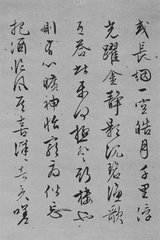 或長烟一空皓月千里浮
光躍金静影沉璧漁歌
互答此樂何極登斯樓也
則有心曠神怡寵辱偕忘
把酒臨風其喜洋洋者矣嗟